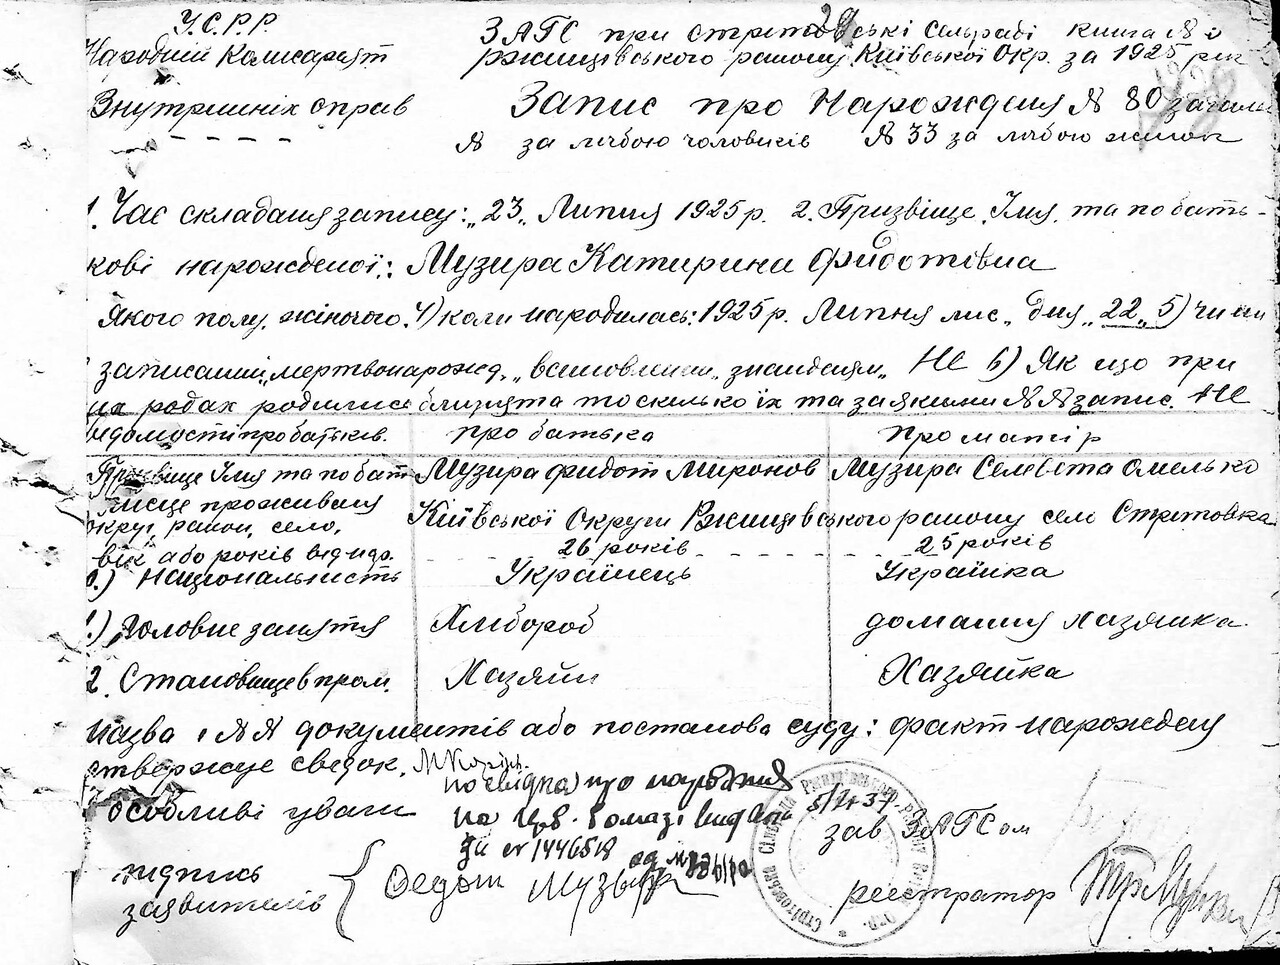 У.С.Р.Р.
Народній Комисаріят
Внутришніх справ
29
ЗАГС при стритовські Сільраді книга №
Ржищівського району Київської Окр. за 1925 рік
Запис про Нарождення № 80 загальн
№ за лічбою чоловиків № 33 за лічбою жінок
1. Час складання запису: "23" Липня 1925 р. 2. Призвіще, Імя, та по бать-
кові народженої: Музира Катирина Фидотівна
Якого полу. жіночого. 4) коли народилась: 1925 р. Липня міс. дня "22" 5) чи ни
записаний "мертвонарожд." знайдений" Не 6) Як що при
цих родах родились близнята то скилько їх та за якими №№ запис. Не
відомості про батьків. про батька про матір
Призвіще Імя та по бать Музира Фидот Миронов Музира Селевста Омелько
місце проживаня
округ, район, село, Київської Округи Ржищівського району село Стритовка
вік або років від нар. 26 років 25 років
0.) Национальнисть Українець Українка
1.) Головне заняття Хлибороб домашня хазяйка
2. Становище в пром. Хазяйн Хазяйка
Назва і №№ документів або постанова суду: факт нарождення
стверджує свєдок.
особливі уваги
посвідка) що народження
на Црв. бомазі видана
за № 1446518
5/IV 37
зав ЗАГСом
підпись
заявителів
Федот Музыра
реєстратор